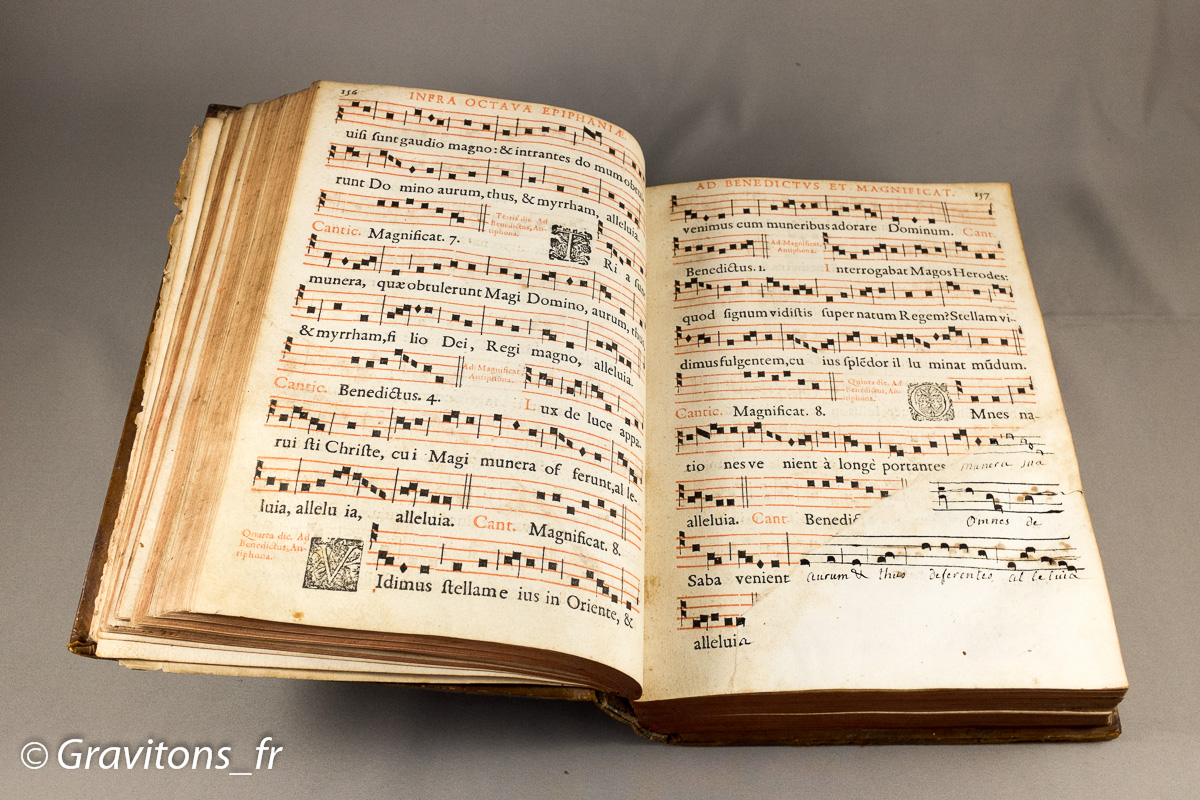 156
INFRA OCTAVÆ EPIPHANIÆ.
uisi sunt gaudio magno: & intrantes do mum obtu
runt Do mino aurum, thus, & myrrham, alleluia.
Tertia die. Ad
Benedictus, An-
tiphona.
Cantic. Magnificat. 7.
T Ri a sunt
munera, quæ obtulerunt Magi Domino, aurum, thus
& myrrham, fi lio Dei, Regi magno, alleluia.
Ad Magnificat,
Antiphona.
Cantic. Benedictus. 4.
L ux de luce appa-
rui sti Christe, cu i Magi munera of ferunt, al le-
luia, allelu ia, alleluia. Cant. Magnificat. 8.
Quarta die. Ad
Benedictus, An-
tiphona.
V Idimus stellam e ius in Oriente, &
AD BENEDICTVS ET MAGNIFICAT. 157
venimus cum muneribus adorare Dominum. Cant.
Ad Magnificat,
Antiphona.
Benedictus. 1. I nterrogabat Magos Herodes:
quod signum vidistis super natum Regem? Stellam vi-
dimus fulgentem, cu ius splēdor il lu minat mūdum.
Quinta die. Ad
Benedictus, An-
tiphona.
Cantic. Magnificat. 8. O Mnes na-
tio nes ve nient à longè portantes munera sua
alleluia. Cant Benedic Omnes de
Saba venient aurum & thus deferentes, al le luia
alleluia
© Gravitons_fr